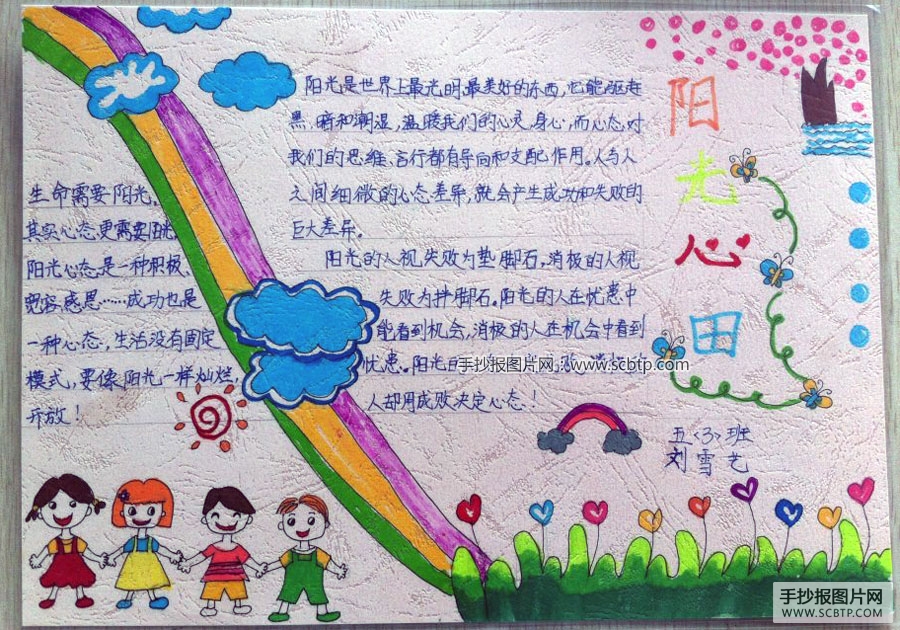 阳光心田
生命需要阳光,
其实心态更需要阳光,
阳光心态是一种积极、
宽容感恩……成功也是
一种心态,生活没有固定
模式,要像阳光一样灿烂,
开放!
阳光是世界上最光明,最美好的东西,它能驱走
黑,暗和潮湿,温暖我们的心灵,身心,而心态,对
我们的思维、言行都有导向和支配作用。人与人
之间细微的心态差异,就会产生成功和失败的
巨大差异。
阳光的人视失败为垫脚石,消极的人视
失败为拌脚石。阳光的人在忧患中
能看到机会,消极的人在机会中看到
忧患。阳光的
人却用成败决定心态!
五<3>班
刘雪艺
手抄报图片网 www.scbtp.com
手抄报图片网
WWW.SCBTP.COM
SCBTP.COM